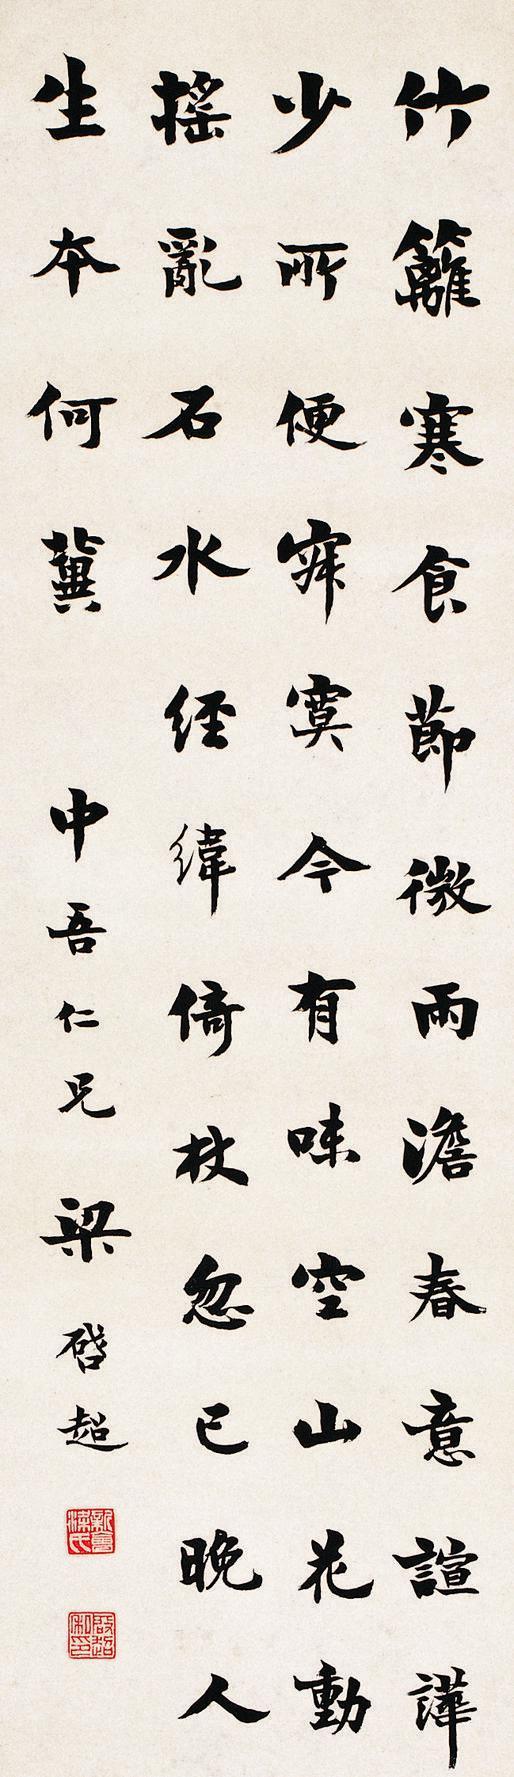 竹籬寒食節微雨澹春意諠譁
少所便寂寞今有味空山花動
搖亂石水經緯倚杖忽已晚人
生本何冀
中吾仁兄 梁啓超
新會梁氏
啟超私印